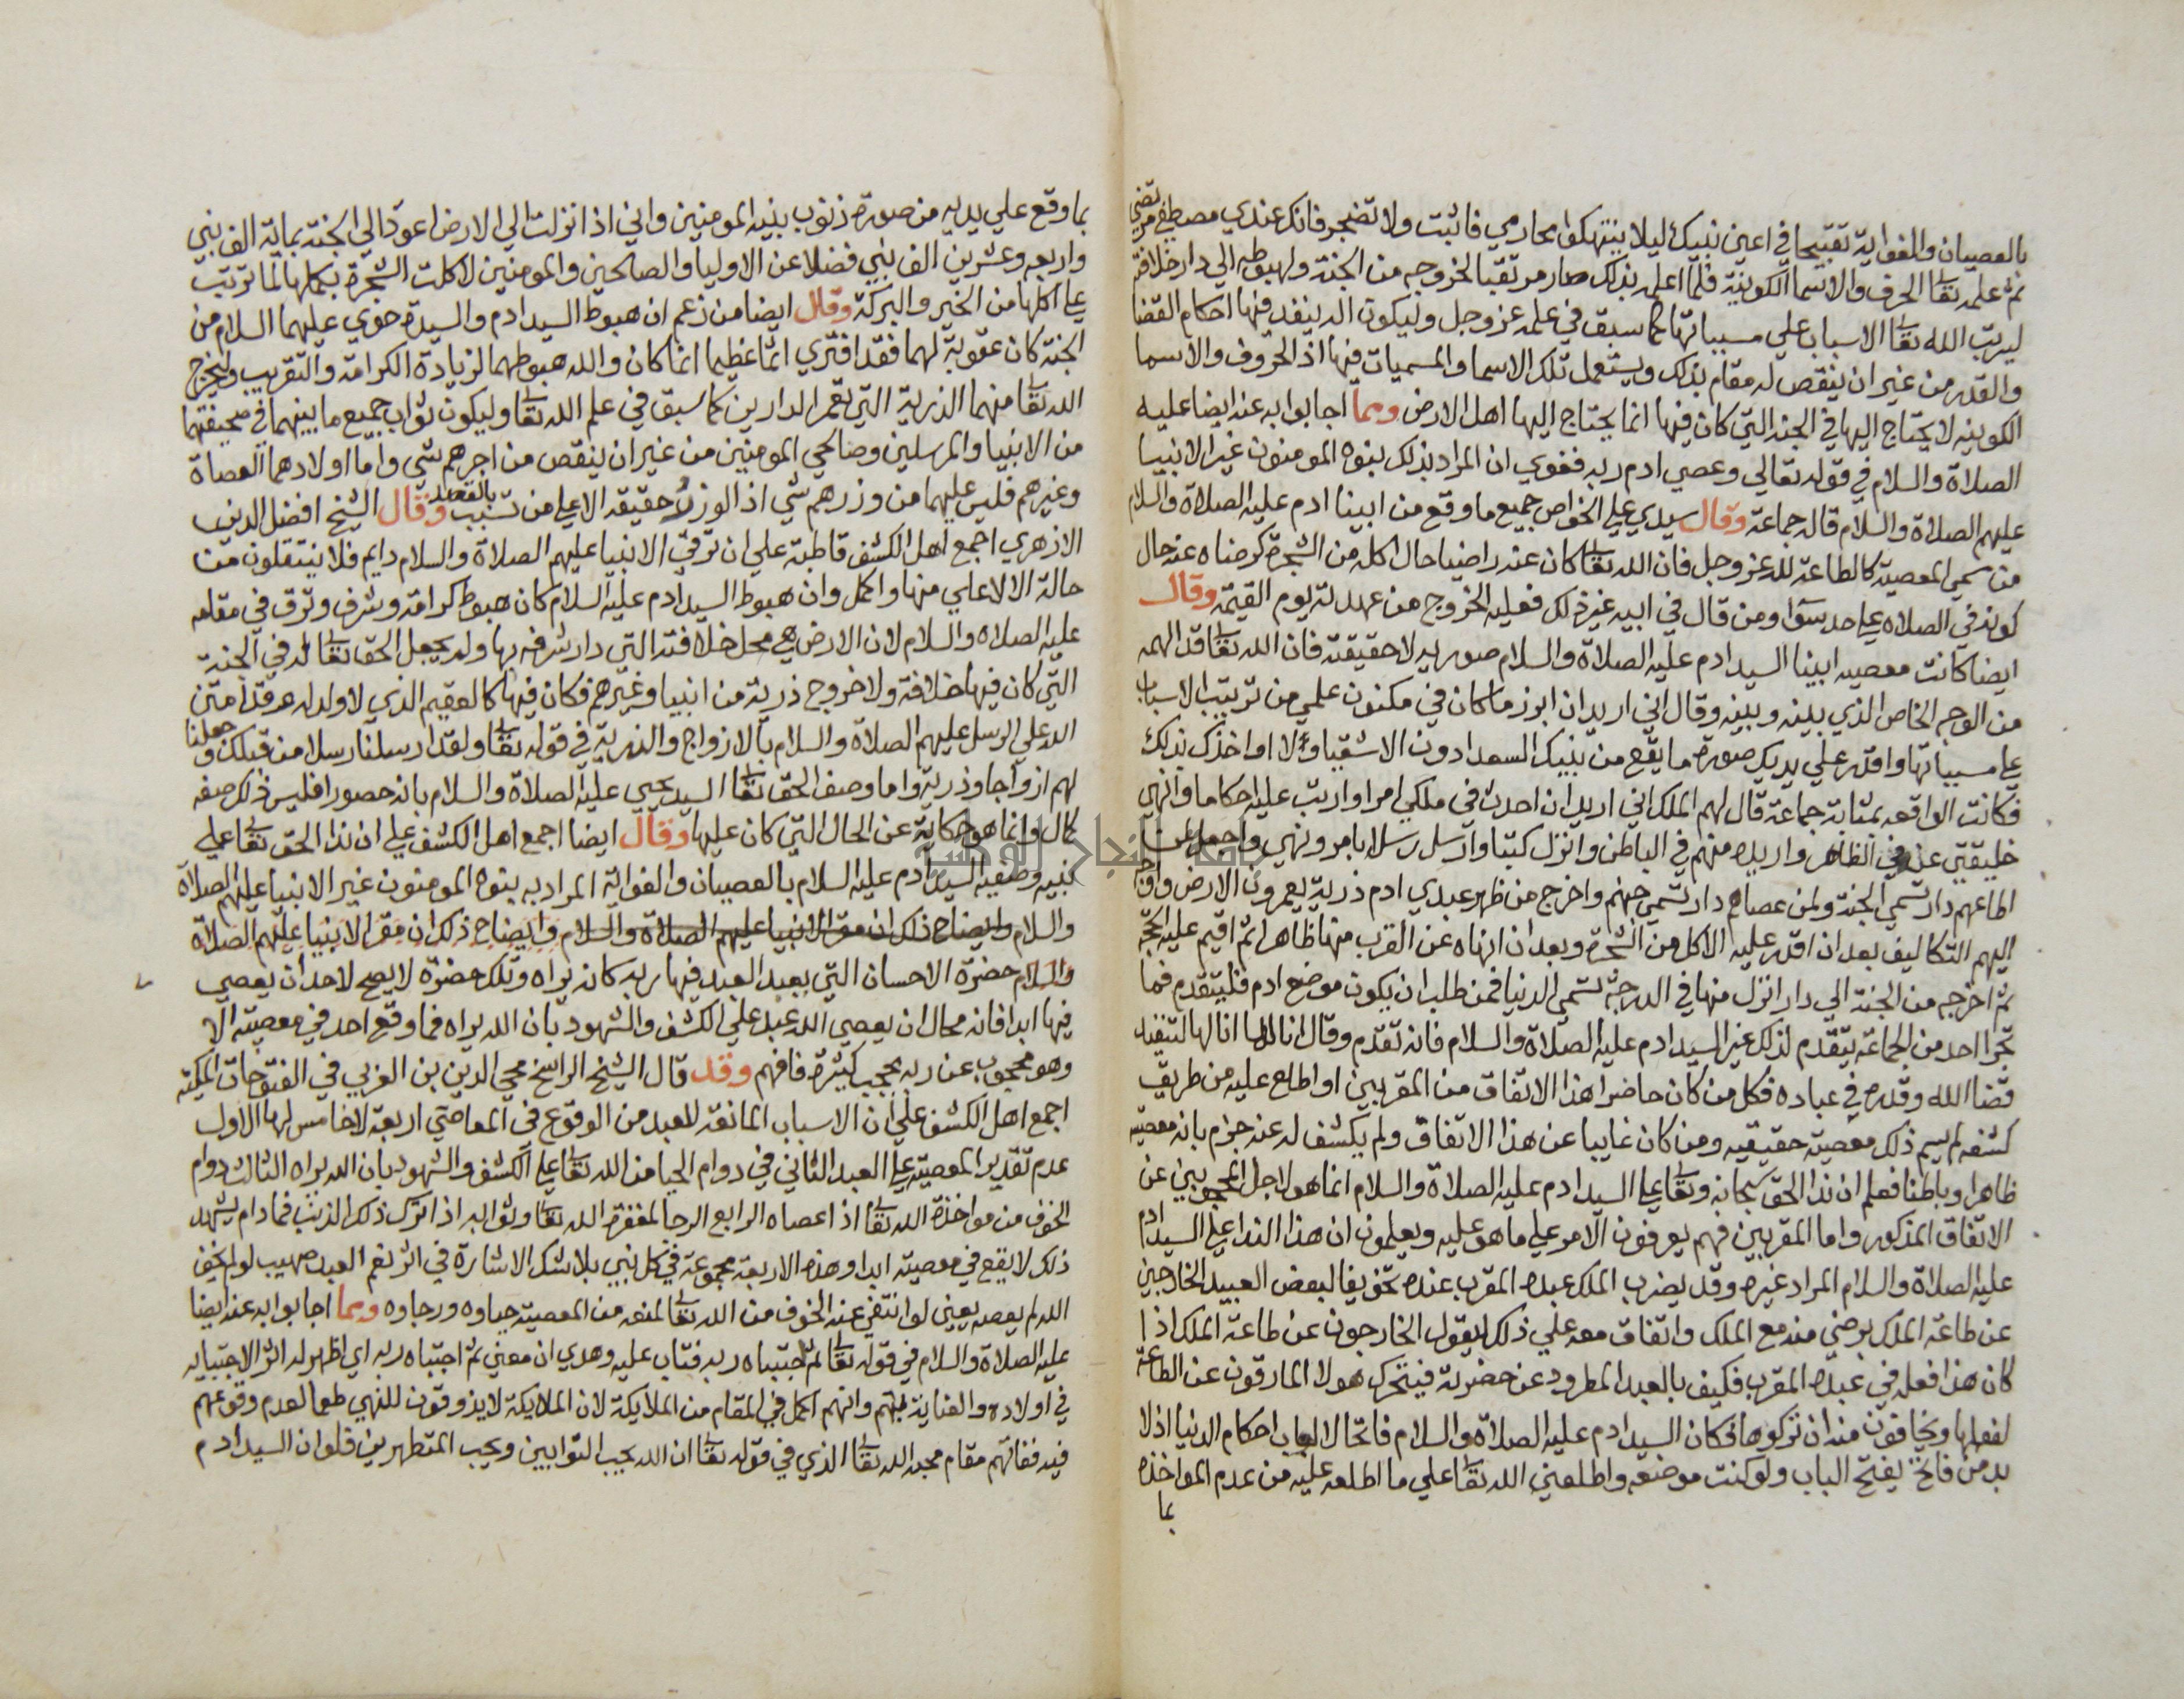 بالعصيان والغواية تقبيحا في اعين بنيك ليلا ينتهكوا محارمي فاثبت ولا تضجر فانك عندي مصطفي مرتضي
ثم علمه تقا الحرف والاسما الكونية فلما اعلمه بذلك صار مرتقبا لخروجه من الجنة ولهبوطه الي دار خلافته
ليرتب الله تقا الاسباب علي مسبباتها كما سبق في علمه عز وجل وليكون الد ينفد فيها احكام القضا
والقدر من غير ان ينقص له مقام بذلك ويستعمل تلك الاسما والمسميات فيها اذ الحروف والاسما
الكونيه لا يحتاج اليها في الجنه التي كان فيها انما يحتاج اليها اهل الارض ومما اجابوا به عنه ايضا عليه
الصلاة والسلام في قوله تعالي وعصي ادم ربه فغوي ان المراد بذلك بنوه المومنون غير الانبيا
عليهم الصلاة والسلام قاله جماعة وقال سيدي علي الخواص جميع ما وقع من ابينا ادم عليه الصلاة والسلام
من سمي المعصية كالطاعة لله عز وجل فان الله تقا كان عنه راضيا حال اكله من الشجرة كرضاه عنه حال
كونه في الصلاه علي حد سوا ومن قال في ابيه غير ذلك فعليه الخروج من عهدته يوم القيمة وقال
ايضا كانت معصيه ابينا السيد ادم عليه الصلاة والسلام صوريه لا حقيقة فان الله تقا قد الهمه
من الوجه الخاص الذي بينه وبينه وقال اني اريد ان ابرز ما كان في مكنون علمي من ترتيب الاسباب
علي مسبباتها واقدر علي يديك صورة ما يقع من بنيك السعدا دون الاشقيا ولا اواخذك بذلك
فكانت الواقعه بمثابة جماعة قال لهم الملك اني اريد ان احدث في ملكي امرا وارتب عليه احكاما وانهي
خليقتي عنه في الظاهر واريده منهم في الباطن وانزل كتبا وارسل رسلا بامر ونهي واجعل لمن
اطاعهم دار تسمي الجنة ولمن عصاهم دار تسمي جهنم واخرج من ظهر عبدي ادم ذرية يعمرون الارض واوجه
اليهم التكاليف بعد ان اقدر عليه الاكل من الشجرة وبعد ان انهاه عن القرب منها ظاهرا ثم اقيم عليه الحجة
ثم اخرجه من الجنة الي دار انزل منها في الدرجة تسمي الدنيا فمن طلب ان يكون موضع ادم فليتقدم فما
تجرا احد من الجماعة يتقدم لذلك غير السيد ادم عليه الصلاة والسلام فانه تقدم وقال انا لها انا لها لتنفيد
قضا الله وقدره في عباده فكل من كان حاضرا هذا الاتفاق من المقربين او اطلع عليه من طريق
كشفه لم يسم ذلك معصية حقيقيه ومن كان غايبا عن هذا الاتفاق ولم يكشف له عنه جزم بانه معصية
ظاهرا وباطنا فعلم ان ندا الحق سبحانه وتقا علي السيد ادم عليه الصلاة والسلام انما هو لاجل المحجوبين عن
الاتفاق المذكور واما المقربين فهم يعرفون الامر علي ما هو عليه ويعلمون ان هذا الندا علي السيد ادم
عليه الصلاة والسلام المراد غيره وقد يضرب الملك عبده المقرب عنده تخويفا لبعض العبيد الخارجين
عن طاعة الملك برضي منه مع الملك واتفاق معه علي ذلك ليقول الخارجون عن طاعة الملك اذا
كان هذا فعله في عبده المقرب فكيف بالعبد المطرود عن حضرته فيتحرك هولا المارقون عن الطاعة
لفعلها ويخافون منه ان تركوها فكان السيد ادم عليه الصلاة والسلام فاتحا لابواب احكام الدنيا اذ لا
بد من فاتح يفتح الباب ولو كنت موضعه واطلعني الله تقا علي ما اطلعه عليه من عدم المواخذه
بما
بما وقع علي يديه من صورة ذنوب بنيه المومنين واني اذا نزلت الي الارض اعود الي الجنة بماية الف نبي
واربعه وعشرين الف نبي فضلا عن الاوليا والصالحين والمومنين لاكلت الشجرة بكمالها لما ترتب
علي اكلها من الخير والبركة وقال ايضا من زعم ان هبوط السيد ادم والسيدة حوي عليهما السلام من
الجنة كان عقوبة لهما فقد افتري اثما عظيما انما كان والله هبوطهما لزيادة الكرامة والتقريب وليخرج
الله تقا منهما الذرية التي تعمر الدارين كما سبق في علم الله تقا وليكون ثواب جميع ما بينهما في صحيفتهما
من الانبيا والمرسلين وصالحي المومنين من غير ان ينقص من اجرهم شي واما اولادهما العصاة
وغيرهم فليس عليهما من وزرهم شي اذ الوزر حقيقه الا علي من تسبب بالقصد وقال الشيخ افضل الدين
الازهري اجمع اهل الكشف قاطبة علي ان ترقي الانبيا عليهم الصلاة والسلام دايم فلا ينتقلون من
حالة الا لاعلي منها واكمل وان هبوط السيد ادم عليه السلام كان هبوط كرامة وشرف وترق في مقامه
عليه الصلاه والسلام لان الارض هي محل خلافته التي دار شرفه بها ولم يجعل الحق تقا له في الجنة
التي كان فيها خلافة ولا خروج ذرية من انبيا وغيرهم فكان فيها كالعقيم الذي لا ولد له وقد امتن
الله علي الرسل عليهم الصلاة والسلام بالازواج والذرية في قوله تقا ولقد ارسلنا رسلا من قبلك وجعلنا
لهم ازواجا وذرية واما وصف الحق تقا السيد يحيي عليه الصلاة والسلام بانه حصورا فليس ذلك صفه
كمال وانما هو حكاية عن الحال التي كان عليها وقال ايضا اجمع اهل الكشف علي ان ندا الحق تقا علي
نبيه وصفيه السيد ادم عليه السلام بالعصيان والغواية المراد به بنوه المومنون غير الانبيا عليهم الصلاة
والسلام وايضاح ذلك ان مقر الانبيا عليهم الصلاة والسلام وايضاح ذلك ان مقر الانبيا عليهم الصلاة
والسلام حضرة الاحسان التي يعبد العبد فيها ربه كانه يراه وتلك حضرة لا يصح لاحد ان يعصي
فيها ابدا فانه محال ان يعصي الله عبد علي الكشف والشهود بان الله يراه فما وقع احد في معصية الا
وهو محجوب عن ربه بحجب كثيرة فافهم وقد قال الشيخ الراسخ محي الدين بن العربي في الفتوحات المكية
اجمع اهل الكشف علي ان الاسباب المانعة للعبد من الوقوع في المعاصي اربعة لا خامس لها الاول
عدم تقدير المعصية علي العبد الثاني في دوام الحيا من الله تقا علي الكشف والشهود بان الله يراه الثالث دوام
الخوف من مواخذة الله تقا اذا عصاه الرابع الرجا لمغفرة الله تقا وثوابه اذا ترك ذلك الذنب فما دام يشهد
ذلك لا يقع في معصية ابدا وهذه الاربعة مجموعة في كل نبي بلا شك الاشارة في اثر نعم العبد صهيب لو لم يخف
الله لم يعصه يعني لو انتفي عنه الخوف من الله تقا لمنعه من المعصية حياوه ورجاوه ومما اجابوا به عنه ايضا
عليه الصلاة والسلام في قوله تقا ثم اجتباه ربه فتاب عليه وهدي ان معني ثم اجتباه ربه اي اظهر له اثر الاجتبايه
في اولاده والعناية بهم وانهم اكمل في المقام من الملايكة لان الملايكة لا يذوقون للنهي طعما لعدم وقوعهم
فيه ففاتهم مقام محبه الله تقا الذي في قوله تقا ان الله يحب التوابين ويحب المتطهرين فلو ان السيد ادم